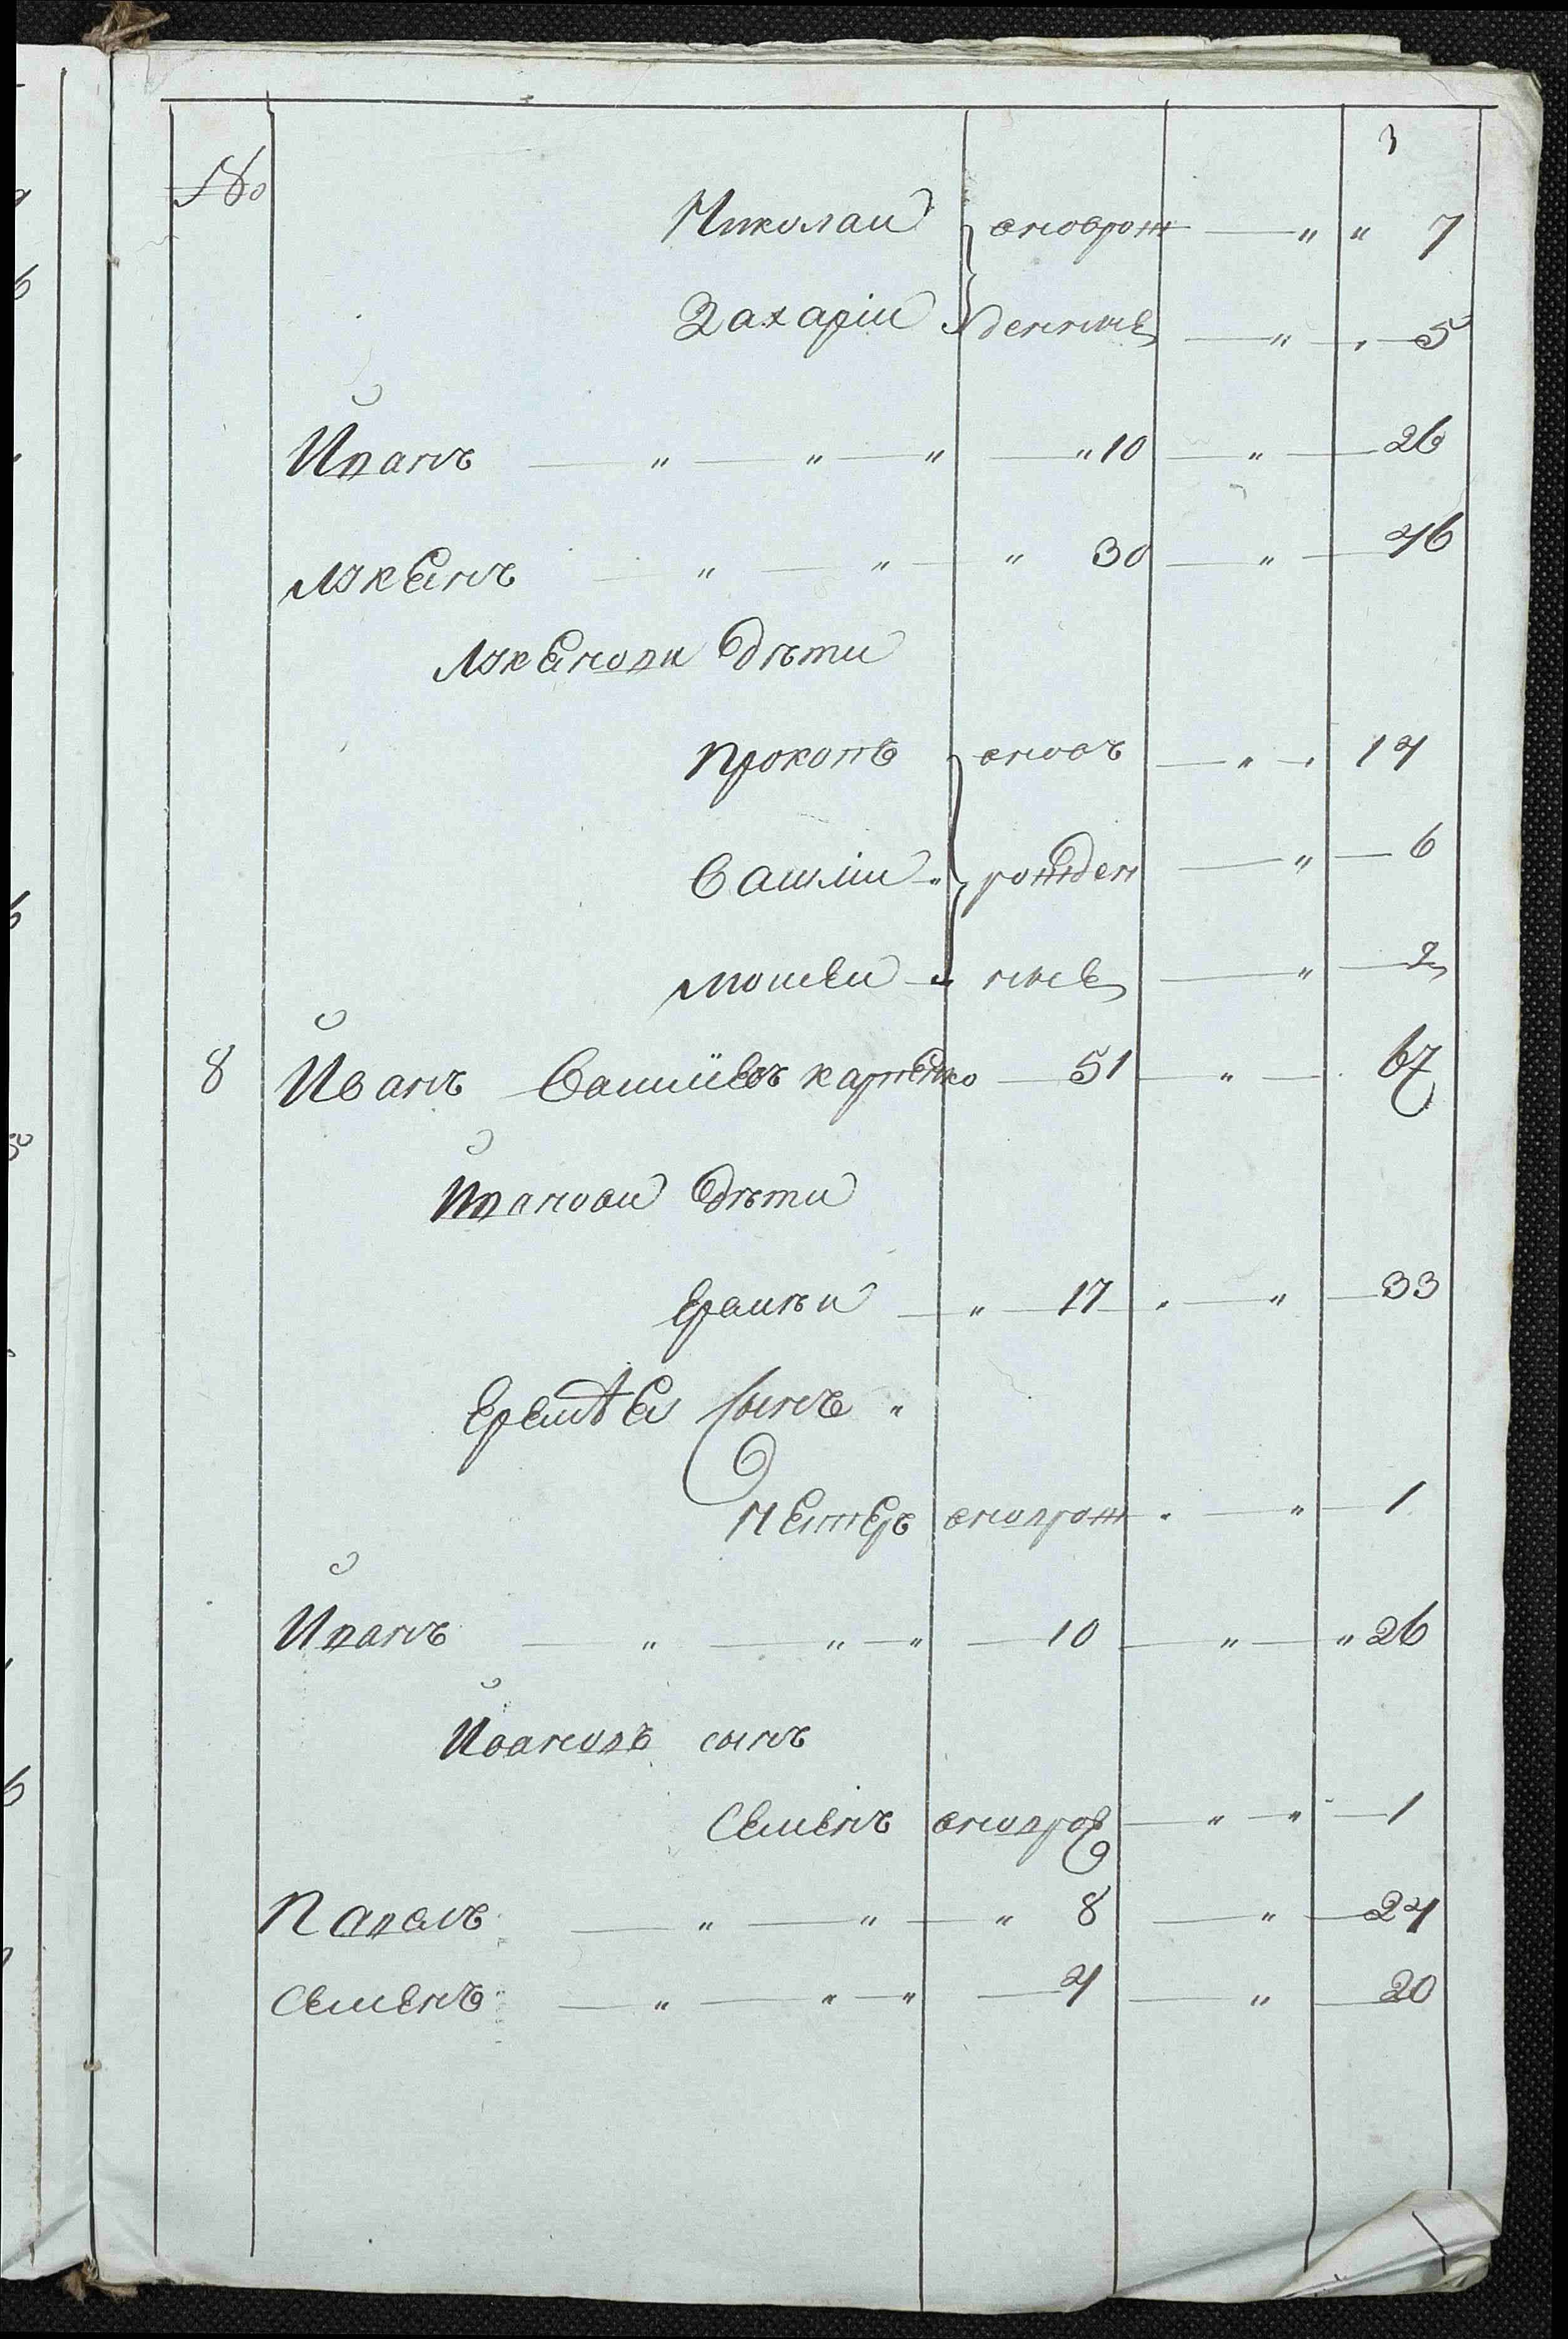 3
№
Николаи вноврож — " " 7
Захаріи денные — " " 5
Иванъ — " — " — " — " 10 — " — 26
Якемъ — " — " — " 30 — " — 46
Якемови Дѣти
Прокопъ вновъ — " — 14
Василіи " рожден — " — 6
Мосеи — ные — " — 2
8 Иванъ Василіевъ карпенко — 51 — " — 67
Ивановы Дѣти
Ермѣи — " — 17 " — " — 33
Еремѣев Сынъ "
Петеръ вноврож " — " — 1
Иванъ — " — " — " — 10 — " — " 26
Ивановъ сынъ
Семенъ вноврож — " — " — 1
Павелъ — " — " — " 8 — " — 24
Семенъ — " — " — " — 4 — " — 20